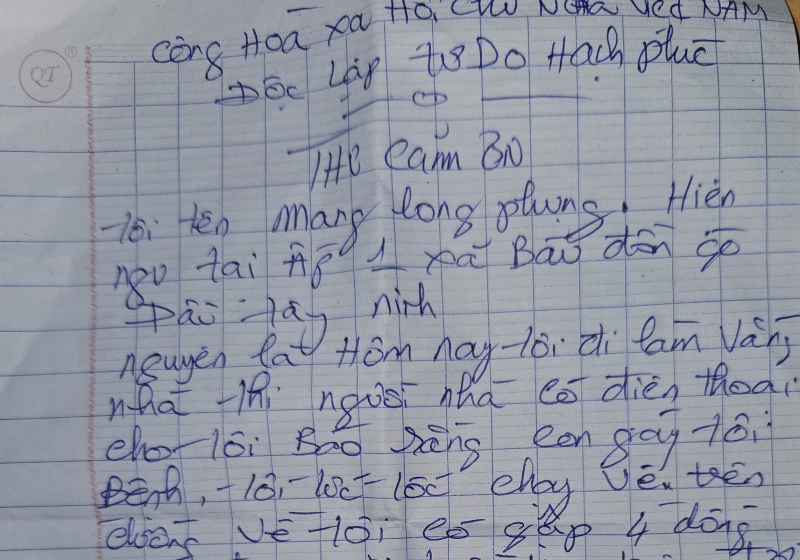 Cộng Hoà xã Hội Chủ Nghĩa Việt NAM
Độc Lập tự Do Hạch phúc
THƯ Cảm ƠN
tôi tên Mang long phụng. Hiên
ngụ tại ấp 1 xã Bàu đồn gò
Dầu tây ninh
nguyên lai Hôm nay tôi đi làm Vắng
nhà thì người nhà có điên thoại
cho tôi Báo rằng con gáy tôi
Bênh, tôi tốc tốc chạy Về. trên
đường Về tôi có gặp 4 đồng
QT